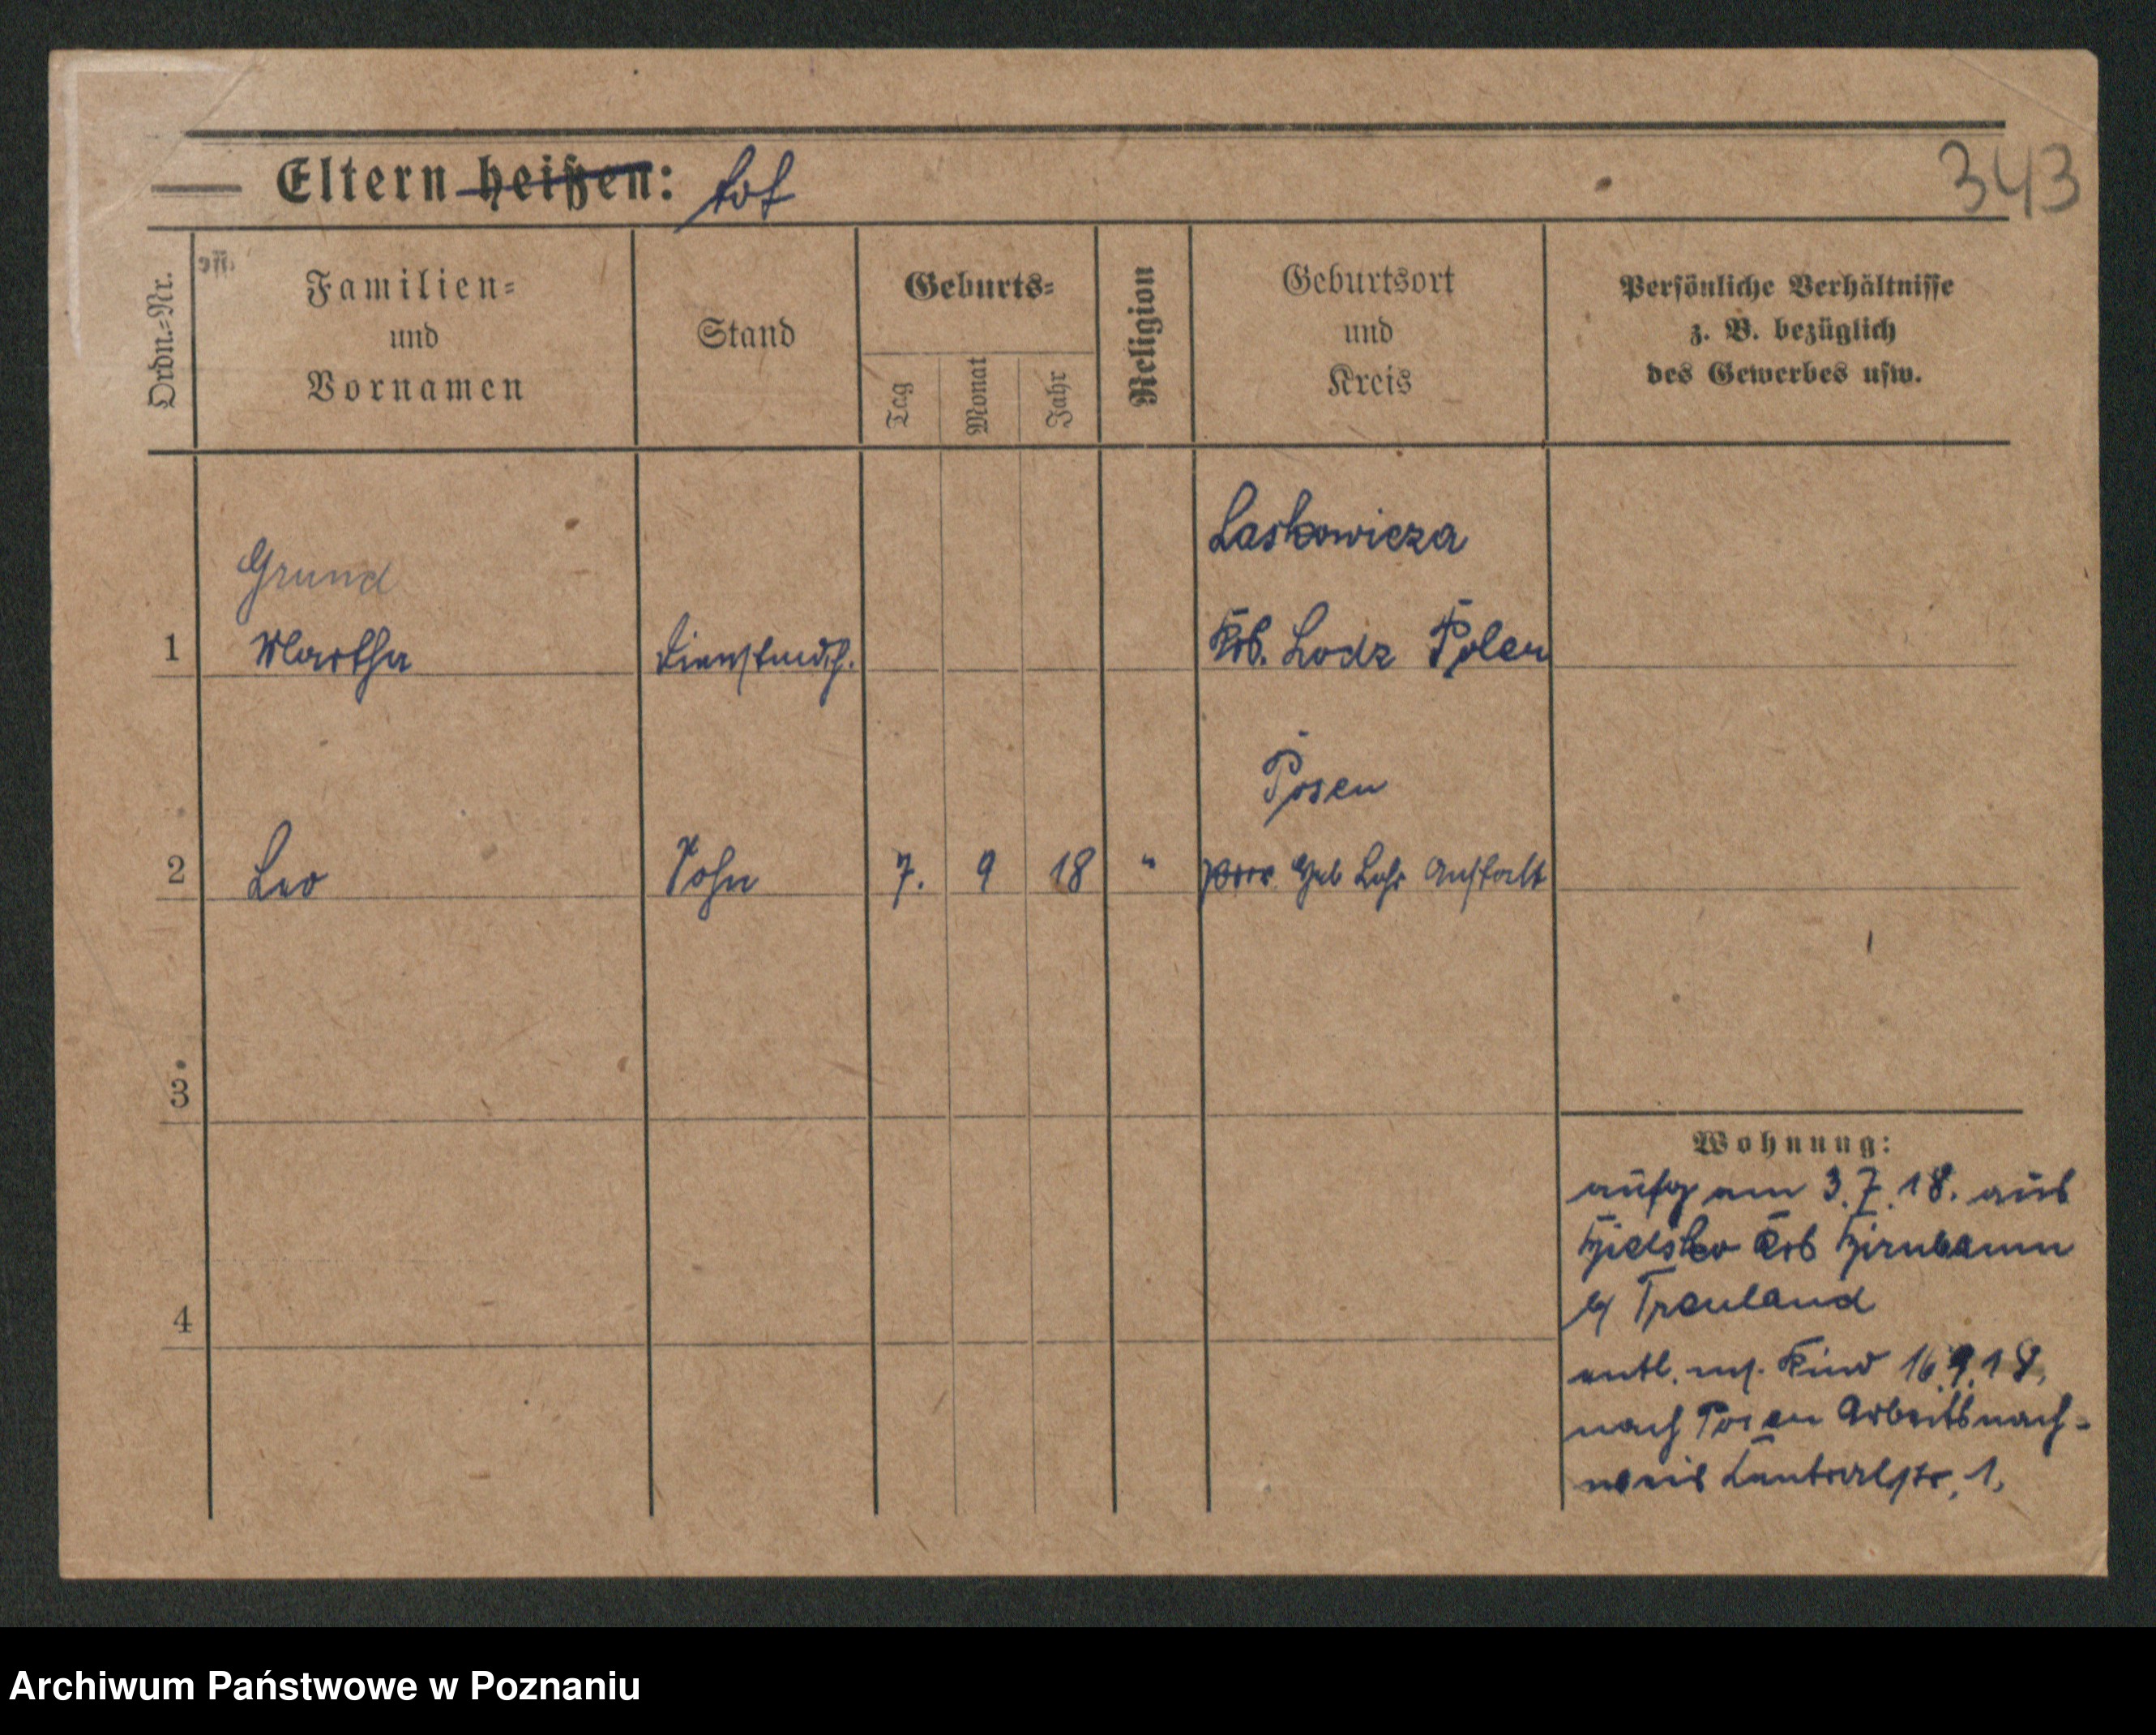 Eltern heißen: tot
343
Ordn.=Nr.
Familien=
und
Vornamen
Stand
Geburts=
Tag
Monat
Jahr
Religion
Geburtsort
und
Kreis
Persönliche Verhältnisse
z. B. bezüglich
des Gewerbes usw.
Grund
Laskowicza
1 Martha Dienstmdch. Krs. Lodz Polen
Posen
2 Leo Sohn 7. 9 18 " prov Geb Lehr Anstalt
3
4
Wohnung:
aufg am 3.7.18. aus
Krs Birnbaum
b/ Treuland
entl. m/. Kind 16.9.18.
nach Posen Arbeitsnach-
weis Zentralstr. 1.
Archiwum Państwowe w Poznaniu